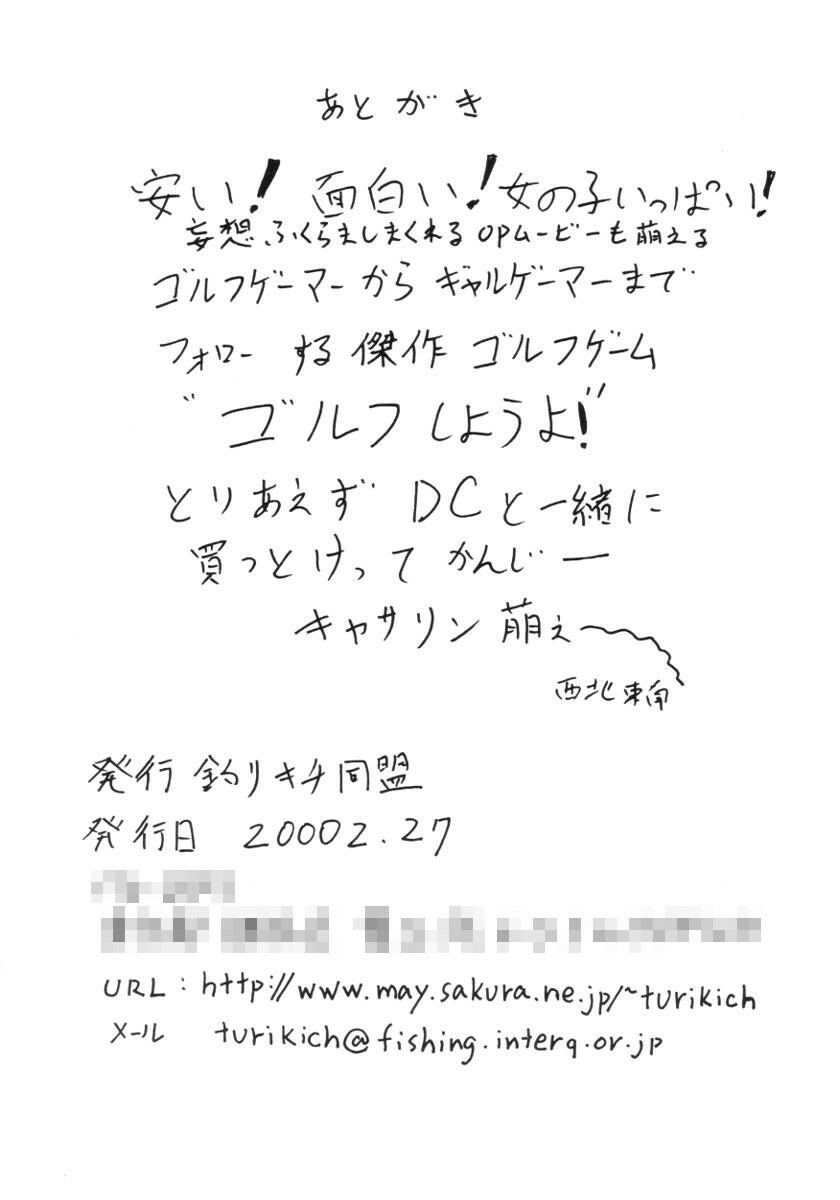 あとがき
安い! 面白い! 女の子いっぱい!
妄想、ふくらましまくれるOPムービーも萌える
ゴルフゲーマーからギャルゲーマーまで
フォローする傑作ゴルフゲーム
"ゴルフしようよ!"
とりあえずDCと一緒に
買っとけってかんじー
キャサリン萌え〜
西北東南
発行 釣りキチ同盟
発行日 20002.27
URL : http://www.may.sakura.ne.jp/~turikich
メール turikich@fishing.interq.or.jp